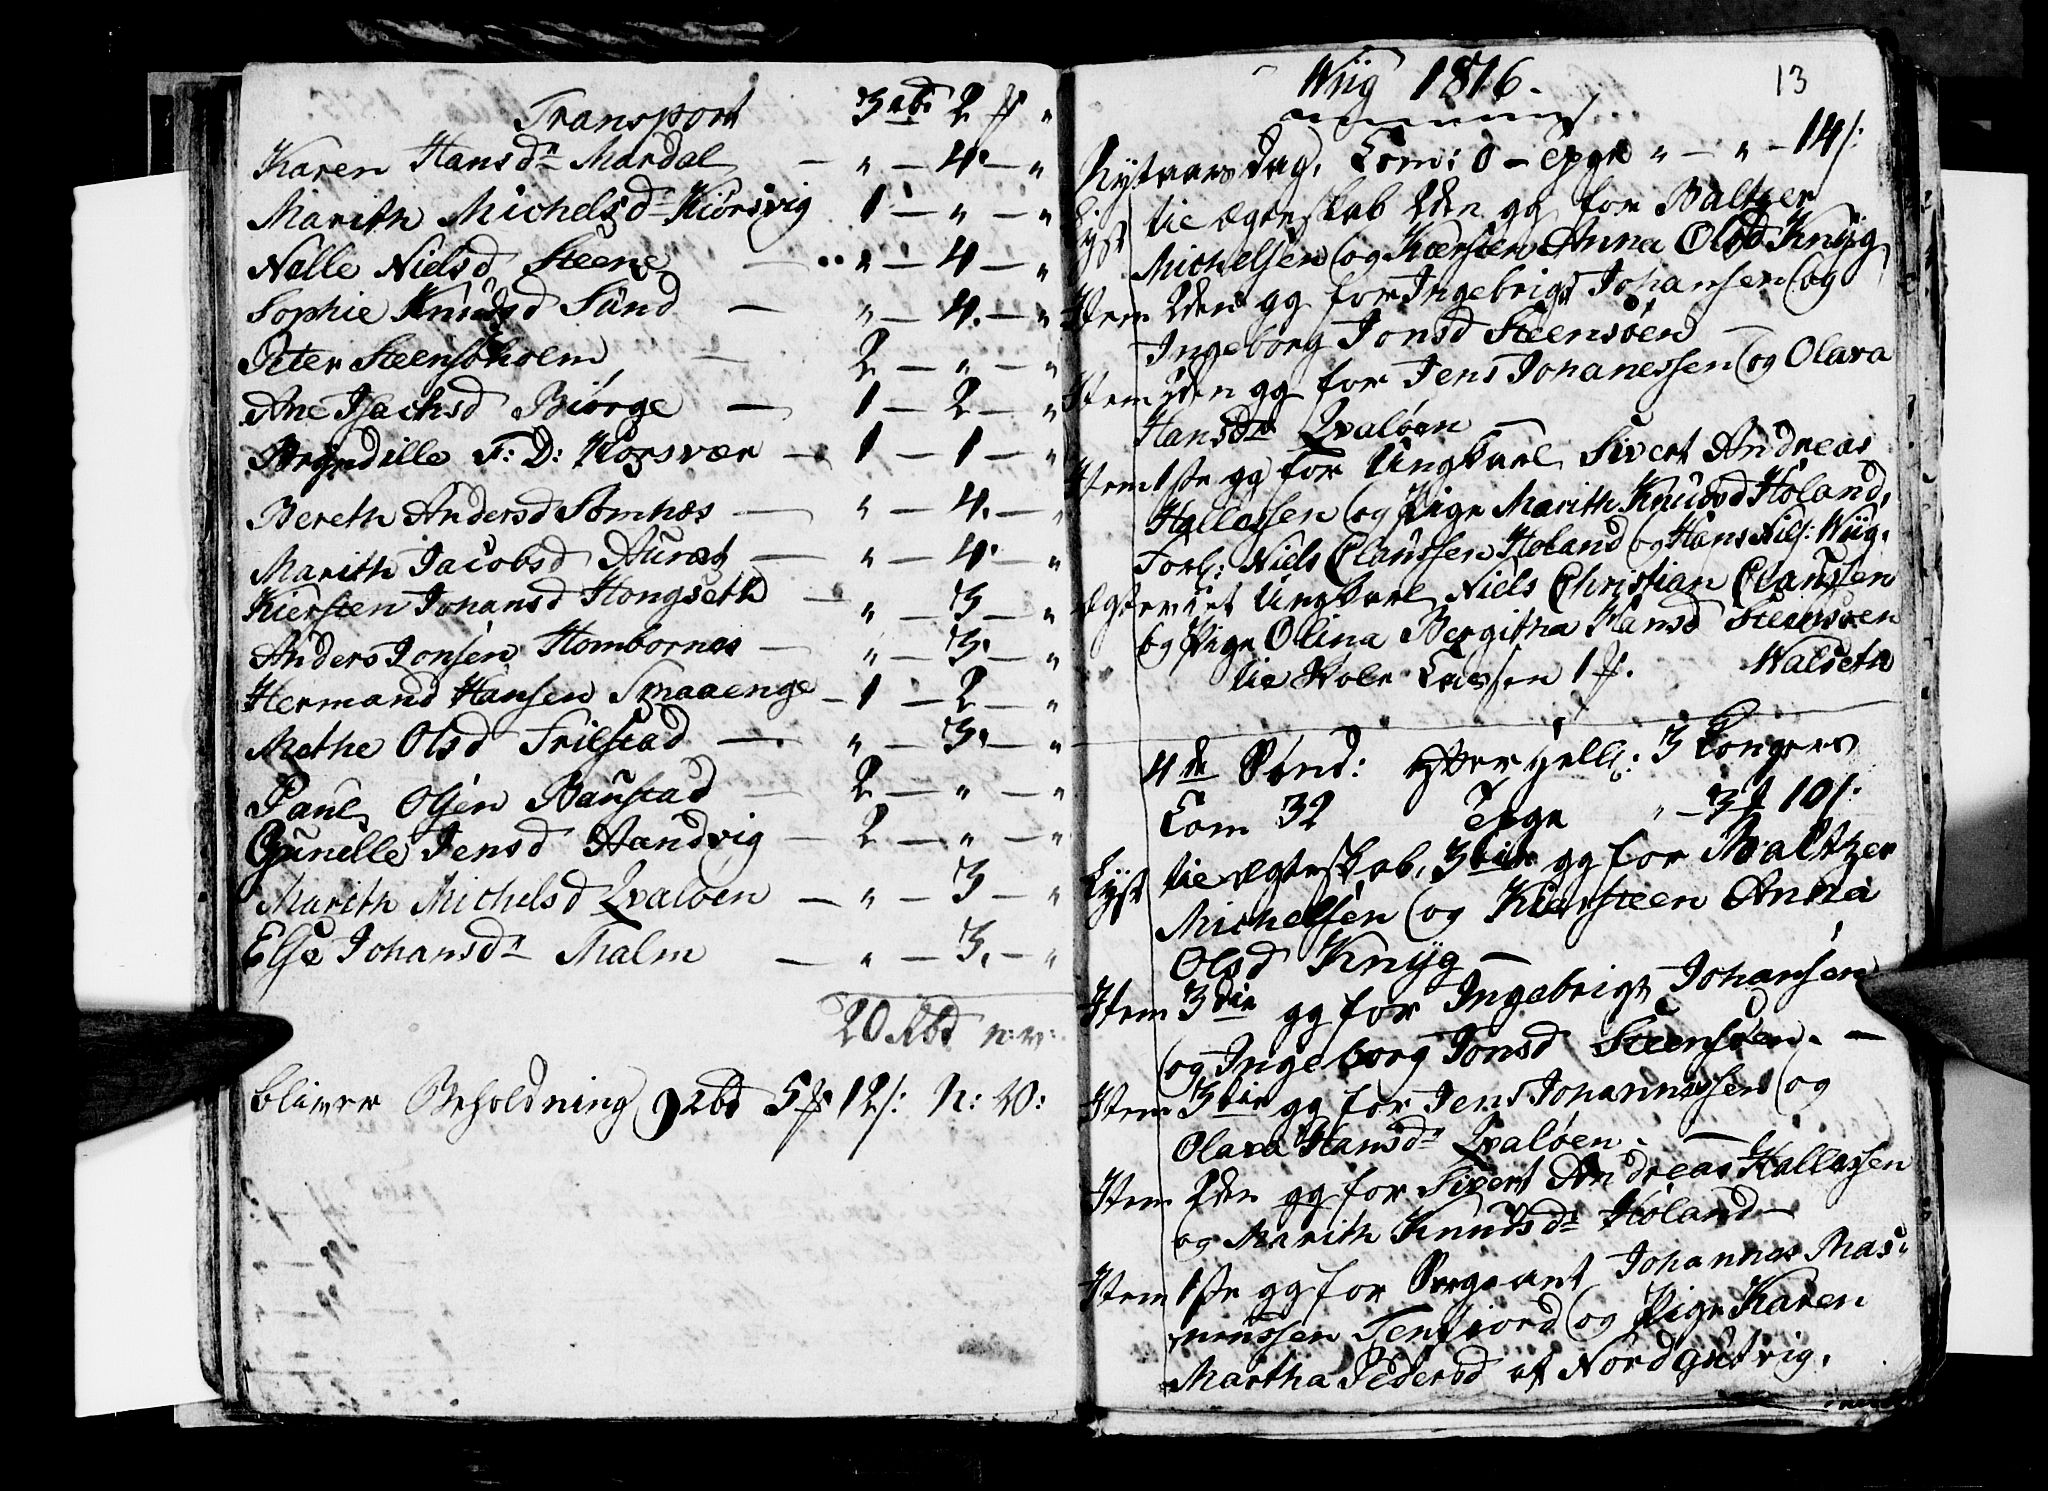 Transport 3 rbd 2 ƒ "
Karen Hansd: Mardal — " — 4. — "
Marith Michelsd Kiörsvig 1 — " — "
Nelle Nielsd Steene — " — 4 — "
Sophie Knudsd Sund — " — 4. — "
Peter Steensöholm — 2 — " — "
Ane Isachsd Biörge — 1 — 2 — "
F: D: Horsvær — 1 — 1 — "
Bereth Andersd Somnæs — " — 4. — "
Marith Jacobsd Auræt — " — 4. — "
Kiersten Johansd Hongseth — " — 3 — "
Anders Jonsen Hombornæs — " — 3. — "
Hermand Hansen Smaaenge — 1 — 2 — "
Methe Olsd Trilstad — " — 3. — "
Paul Olsen Baustad — 2 — " — "
Gunille Jensd Aandvig — 2 — " — "
Marith Michelsd Qvaløen — " — 3 — "
Else Johansd: Malm — " — 3. — "
20 Rbd n: v:
bliver Beholdning 9 rbd 5 ƒ 12 s: N: V:
Wiig 1816.
13
Nytaarsdag, Com: 0 — " — " — 14 s:
Lyst til ægteskab 2den gg for Baltzer
Michelsen og Kiersten Anna Olsd Knÿg
Item 2den gg for Ingebrigt Johansen og
Ingeborg Jonsd Steensöen
Item 2den gg for Jens Johanessen og Olava
Hansd: Qvaløen —
Item 1ste gg for Ungkarl Sivert Andreas
Hallessen og Pige Marith Knudsd Høland,
Forl: Niels Clausen Høland og Hans Niels: Wiig.
Ægteviet Ungkarl Niels Christian Clausen
og Pige Olina Bergitha Hansd Steensøen
til Skole Cassen 1 ƒ. Walseth
4de Sønd: efter Hell: 3 Kongers
Com 32 " — 3 ƒ 10 s:
Lyst til ægteskab, 3die gg for Baltzer
Michelsen og Kiersteen Anna
Olsd Knÿg —
Item 3die gg for Ingebrigt Johansen
og Ingeborg Jonsd Steensøen. —
Item 3die gg for Jens Johannessen og
Olava Hansd: Qvaløen. —
Item 2den gg for Sivert Andreas Hallessen
og Marith Knudsd: Høland —
Item 1ste gg for Sergeant Johannes Ras-
mussen Tenfiord og Pige Karen
Martha Pedersd af Nordgutvig.